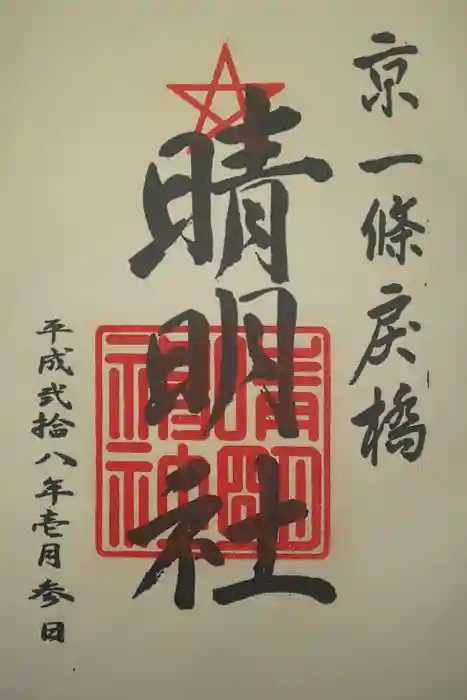 京一條戻橋
晴明社
晴明神社
平成弐拾八年壱月参日